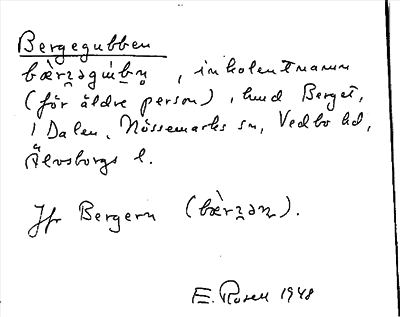 Bergegubben
bæ̀rʒəgúb̥n̥, inkolentnamn
(för äldre person), hmd Berget,
i Dalen, Nössemarks sn, Vedbo hd,
Älvsborgs l.
Jfr Bergern (bæ̀rʒəɳ).
E. Rosell 1948